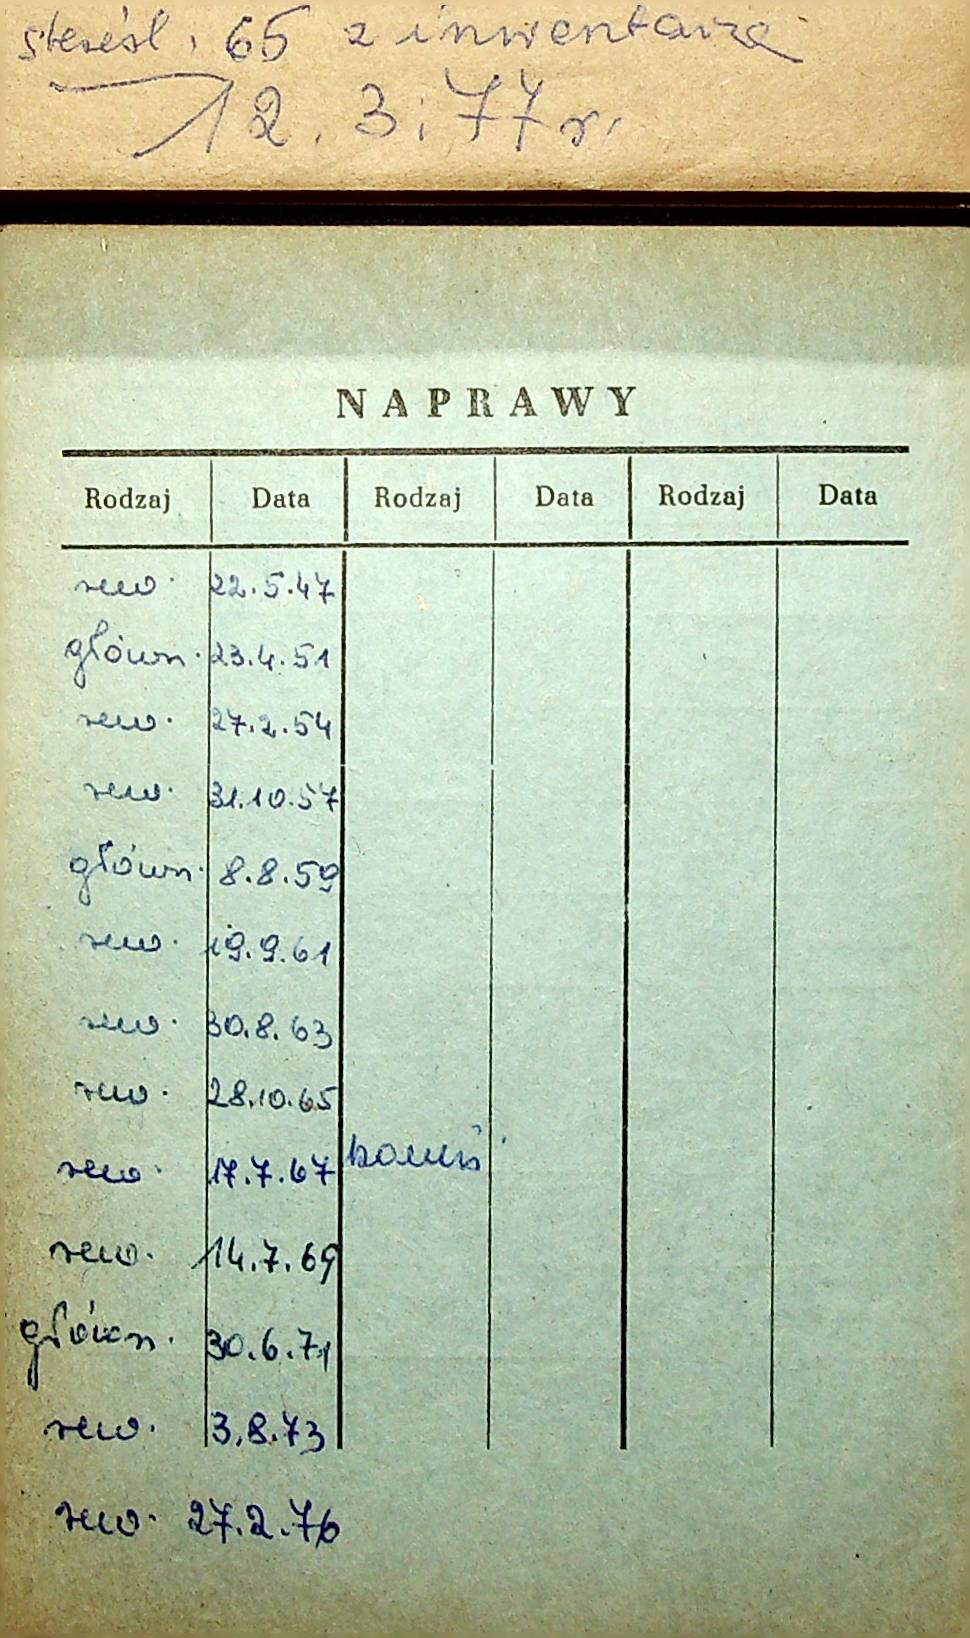 skreśl. 65 z inwentarza
12.3.77r.
NAPRAWY
Rodzaj Data Rodzaj Data Rodzaj Data
rew. 22.5.47
główn. 23.4.51
rew. 27.2.54
rew. 31.10.57
główn. 8.8.59
rew. 19.9.61
rew. 30.8.63
rew. 28.10.65
rew. 17.7.67
rew. 14.7.69
główn. 30.6.71
rew. 3.8.73
rew. 27.2.76